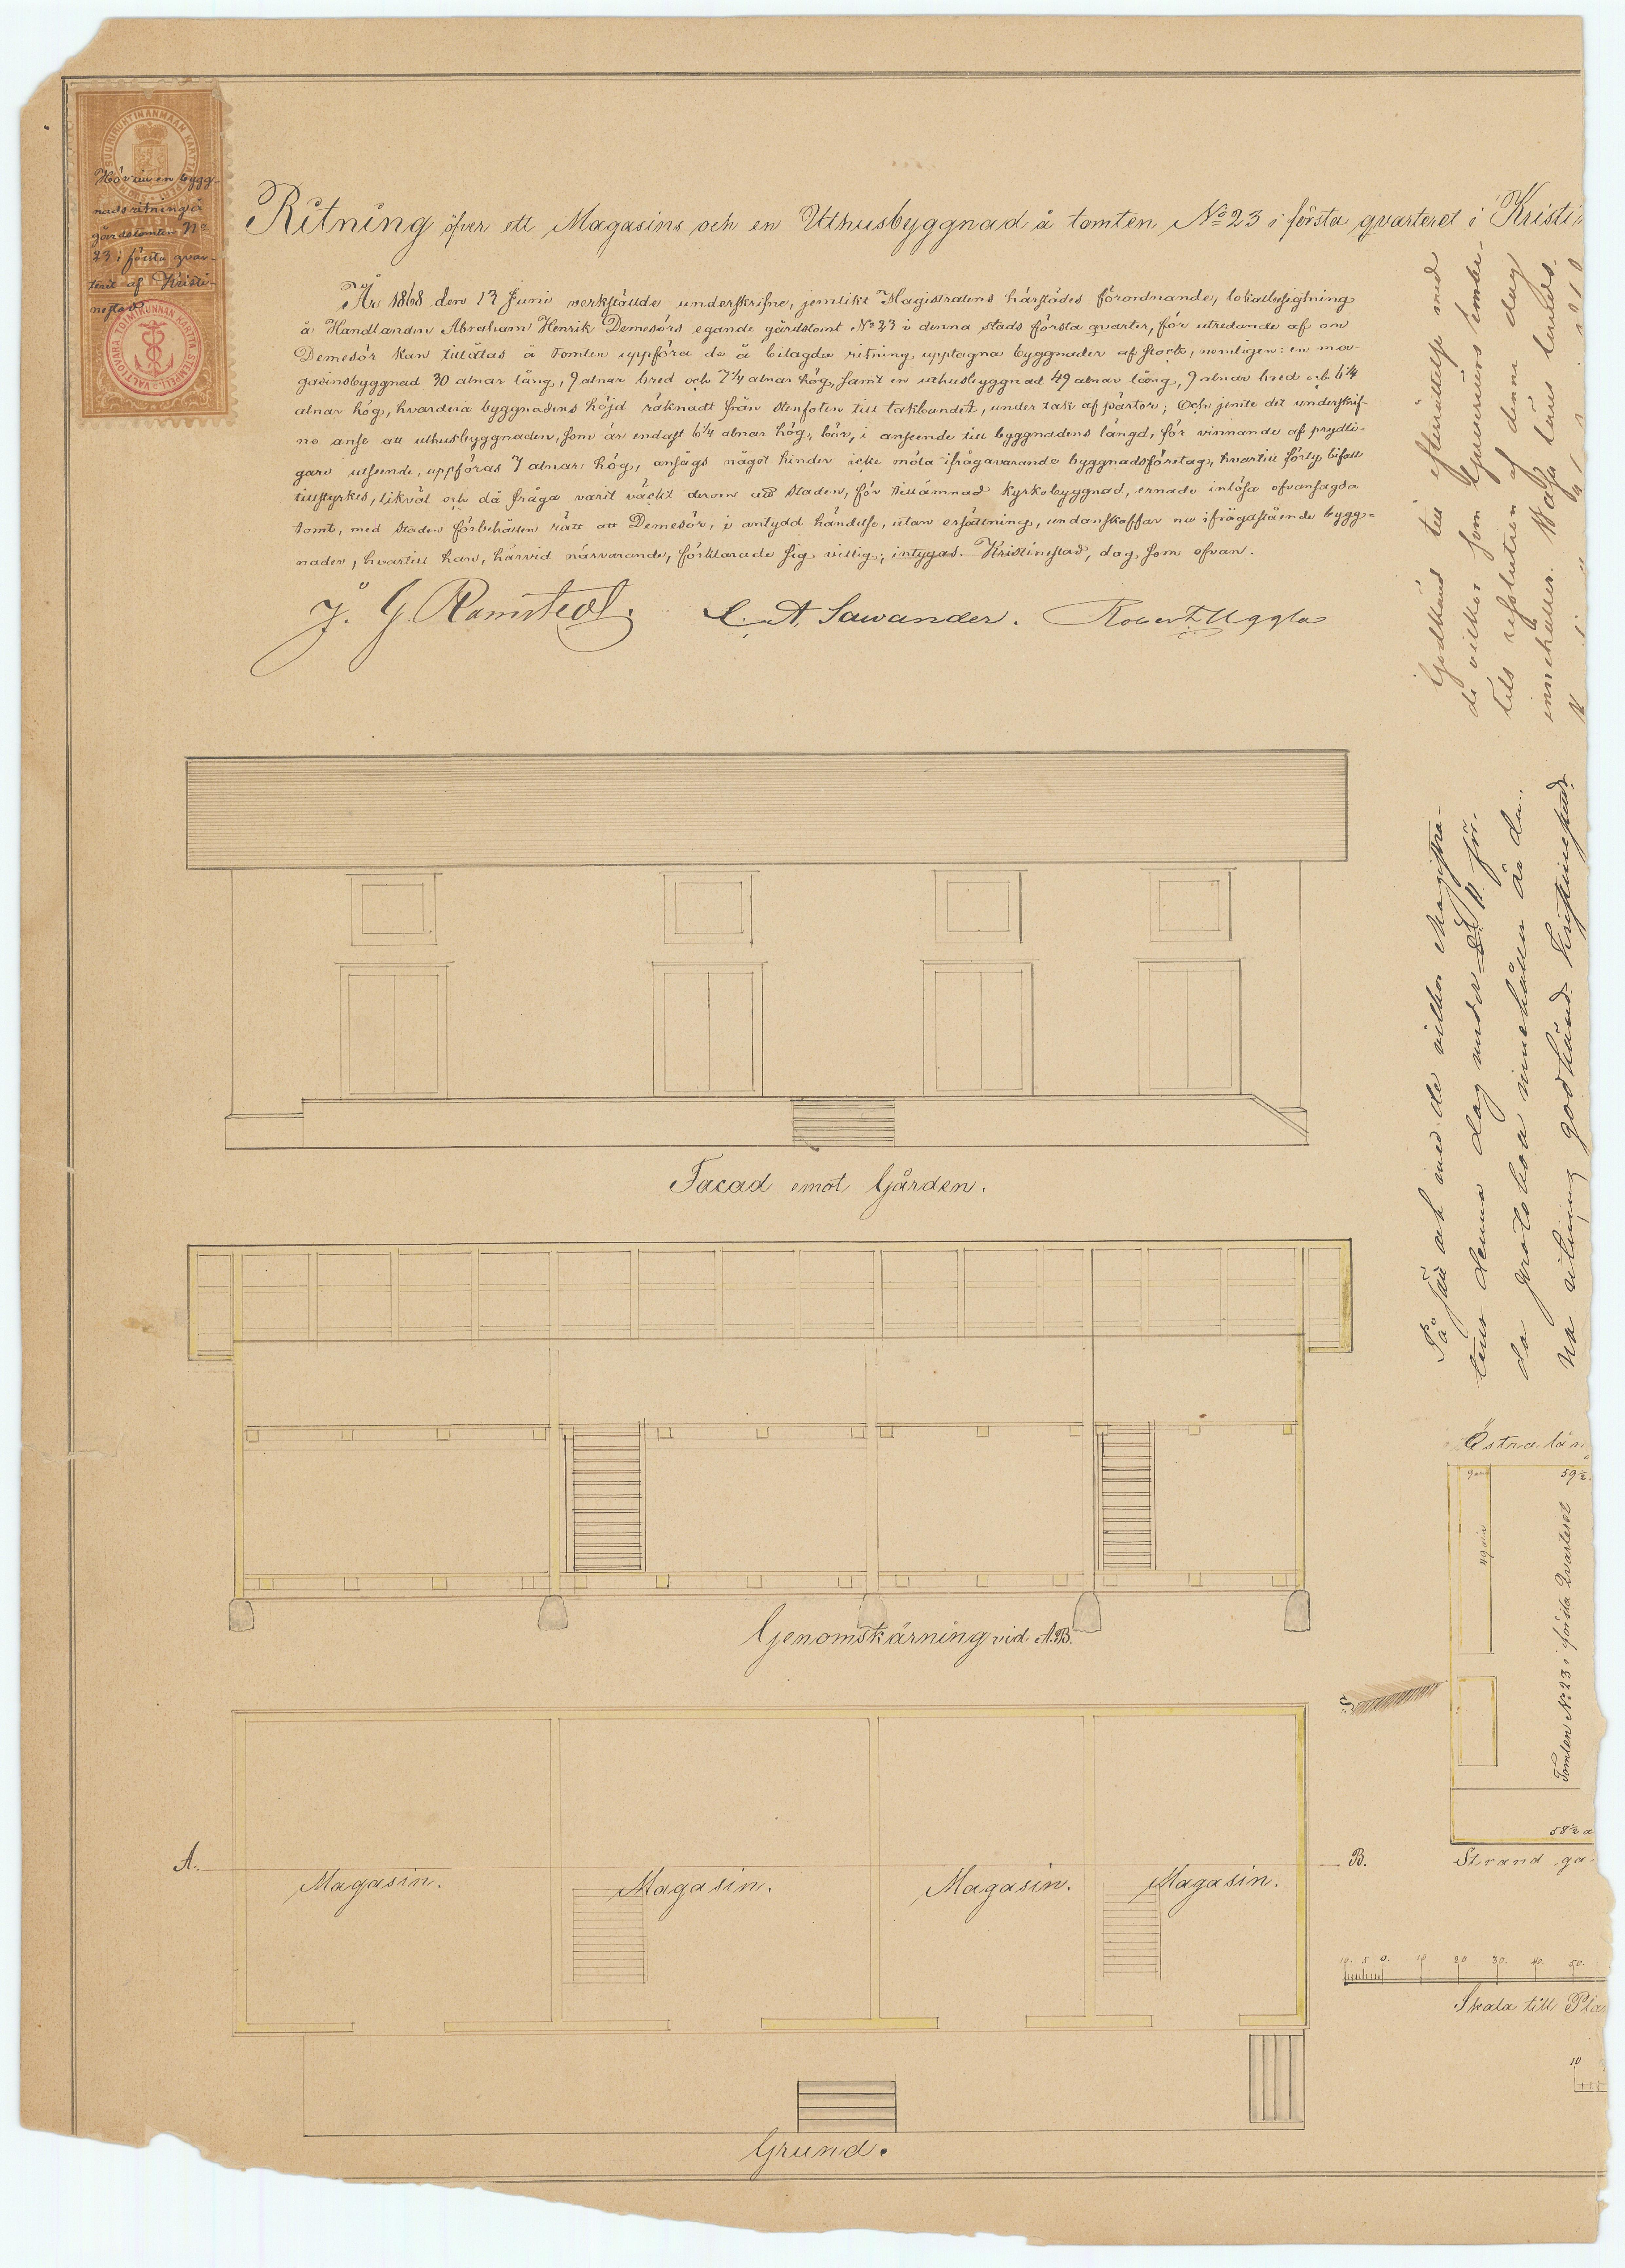 SUURIRUHTINANMAAN KARTTA
Hörau en bygg-
nadsritning å
gårdstomten No
23 i första qvar-
teret af Kristi-
nestad
TOIMIKUNNAN KARTTA STEMPELI-VALTIOVARA
Ritning öfver ett Magasins och en Uthusbyggnad å tomten No 23 i första qvarteret i Kristi
År 1868 den 13 Juni verkställde underskrifne, jemlikt Magistratens härstädes förordnande, lokalbesigtning
å Handlanden Abraham Henrik Demesörs egande gårdstomt No 23 i denna stads första qvarter, för utredande af om
Demesör kan tillåtas å tomten uppföra de å bilagda ritning upptagna byggnader af stock, nemligen: en ma-
gasinsbyggnad 30 alnar lång, 9 alnar bred och 7 1/4 alnar hög, samt en uthusbyggnad 49 alnar lång, 9 alnar bred och 6 1/4
alnar hög, hvardera byggnadens höjd räknadt från stenfoten till takbandet, under tak af pärtor; Och jemte det underskrif-
ne anse att uthusbyggnaden, som är endast 6 1/4 alnar hög, bör, i anseende till byggnadens längd, för vinnande af prydli-
gare utseende, uppföras 7 alnar hög, ansågs något hinder icke möta ifrågavarande byggnadsföretag, hvartill förty bifall
tillstyrkes, likväl och då fråga varit väckt derom att staden, för tillämnad kyrkobyggnad, ernade inlösa ofvansagda
tomt, med staden förbehållen rätt att Demesör, i antydd händelse, utan ersättning, undanskaffar nu ifrågastående bygg-
nader, hvartill han, härvid närvarande, förklarade sig villig; intygas. Kristinestad, dag som ofvan.
J. G. Ramstedt. C. A. Sawander. Robert Uggla
Godkänd till efterrättelse med
de vilkor som Guvernörs Embe-
tets resolution af denne dag
innehåller. Wasa Läns Landts-
På sätt och med de vilkor Magistra-
tens denna dag under § 11 för-
da protokoll innehåller är den-
na ritning godkänd. Kristinestad
Facad emot Gården.
Genomskärning vid A.B.
Östra lån
59 1/2
49 aln
Tomten No 23 i första Qvarteret
58 1/2 a
Strand ga
S
A.
B.
Magasin. Magasin. Magasin. Magasin.
10. 5 0. 10 20 30. 40. 50.
Skala till Pla
10
Grund.